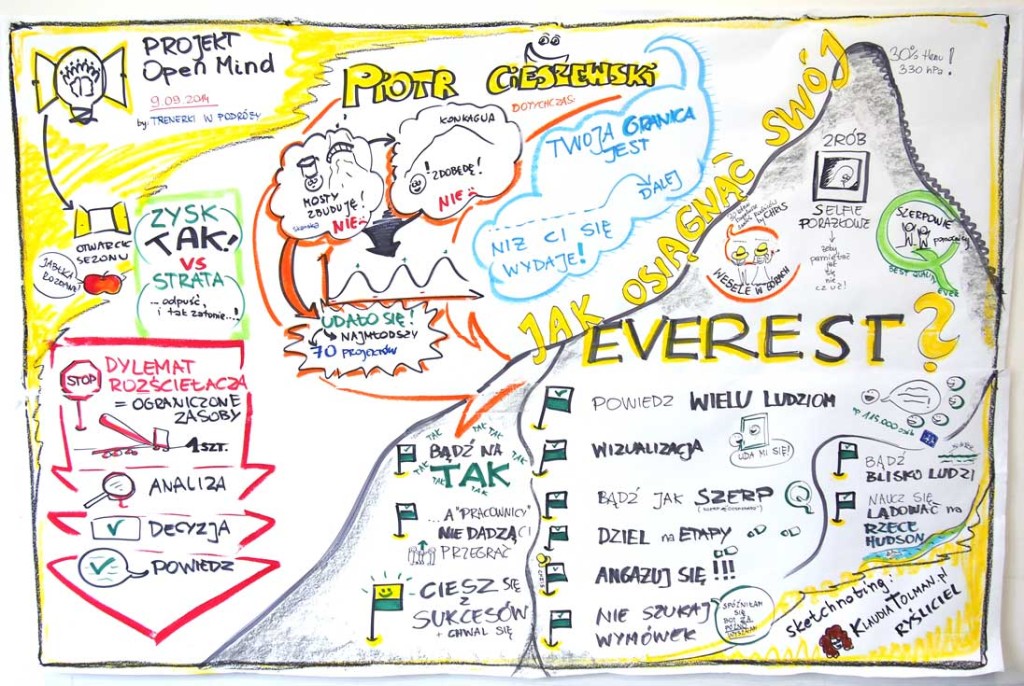 PROJEKT
Open Mind
9.09.2014
by: TRENERKI W PODRÓŻY
PIOTR CIESZEWSKI
DOTYCHCZAS:
KONKAGUA
! ZDOBĘDĘ!
NIE
MOSTY
ZBUDUJĘ!
NIE
UDAŁO SIĘ!
NAJMŁODSZY
70 PROJEKTÓW
TWOJA GRANICA
JEST
DALEJ
NIŻ CI SIĘ
WYDAJE!
OTWARCIE
SEZONU
ZYSK
TAK!
VS
STRATA
... odpuść,
i tak zatonie...!
STOP
DYLEMAT
ROZŚCIEŁACZA
= OGRANICZONE
ZASOBY
1 SZT.
ANALIZA
DECYZJA
POWIEDZ
JAK OSIĄGNĄĆ SWÓJ
EVEREST?
30% tlenu!
330 hPa!
ZRÓB
SELFIE
PORAŻKOWE
żeby
pamiętać
jak
się
nie
czuć!
by CHRIS
WESELE W GÓRACH
SZERPOWIE
pomocnicy
BEST
EVER
BĄDŹ NA
TAK
TAK
TAK
TAK
TAK
TAK
TAK
...A "PRACOWNICY"
NIE DADZĄ CI
PRZEGRAĆ
CIESZ SIĘ
Z
SUKCESÓW
+ CHWAL SIĘ
POWIEDZ WIELU LUDZIOM
WIZUALIZACJA
UDA MI SIĘ!
BĄDŹ JAK SZERP
DZIEL na ETAPY
ANGAŻUJ SIĘ !!!
NIE SZUKAJ
WYMÓWEK
SPÓŹNIŁAM
SIĘ
BĄDŹ
BLISKO LUDZI
NAUCZ SIĘ
LĄDOWAĆ na
RZECE
HUDSON
sketchnoting:
KLAUDIA TOLMAN.pl
RYŚLICIEL